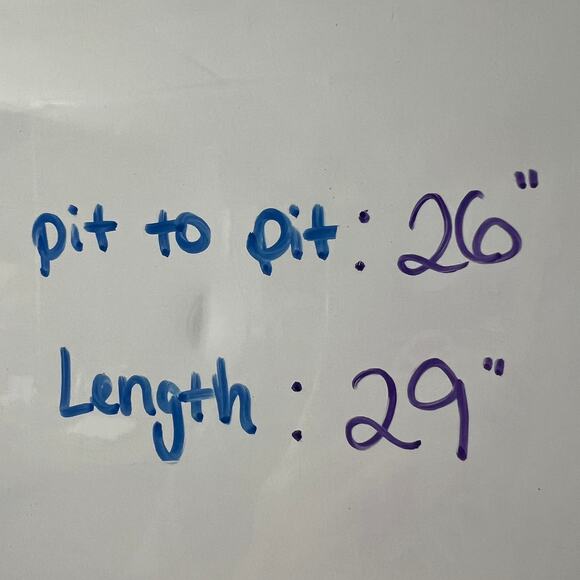 pit to pit: 26"
Length: 29"